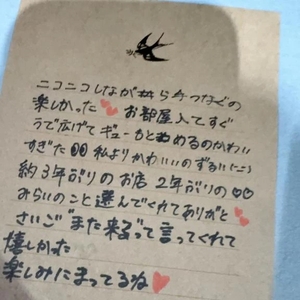 ニコニコしながら手つなぐの
楽しかった💕 お部屋入てすぐ
うで広げてギューもとめるのかわい
すぎた 私よりかわいいのずるい
約3年ぶりのお店 2年ぶりの♡♡
みらいのこと選んでくれてありがと💕
さいご"また来る"って言ってくれて
嬉しかった
楽しみにまってるね♥